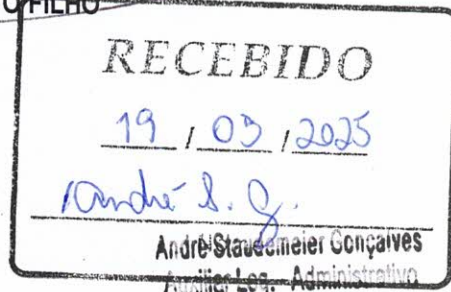 O FILHO
RECEBIDO
19 / 03 / 2025
André S. G.
André Staudemeier Gonçalves
Auxiliar Leg. - Administrativo